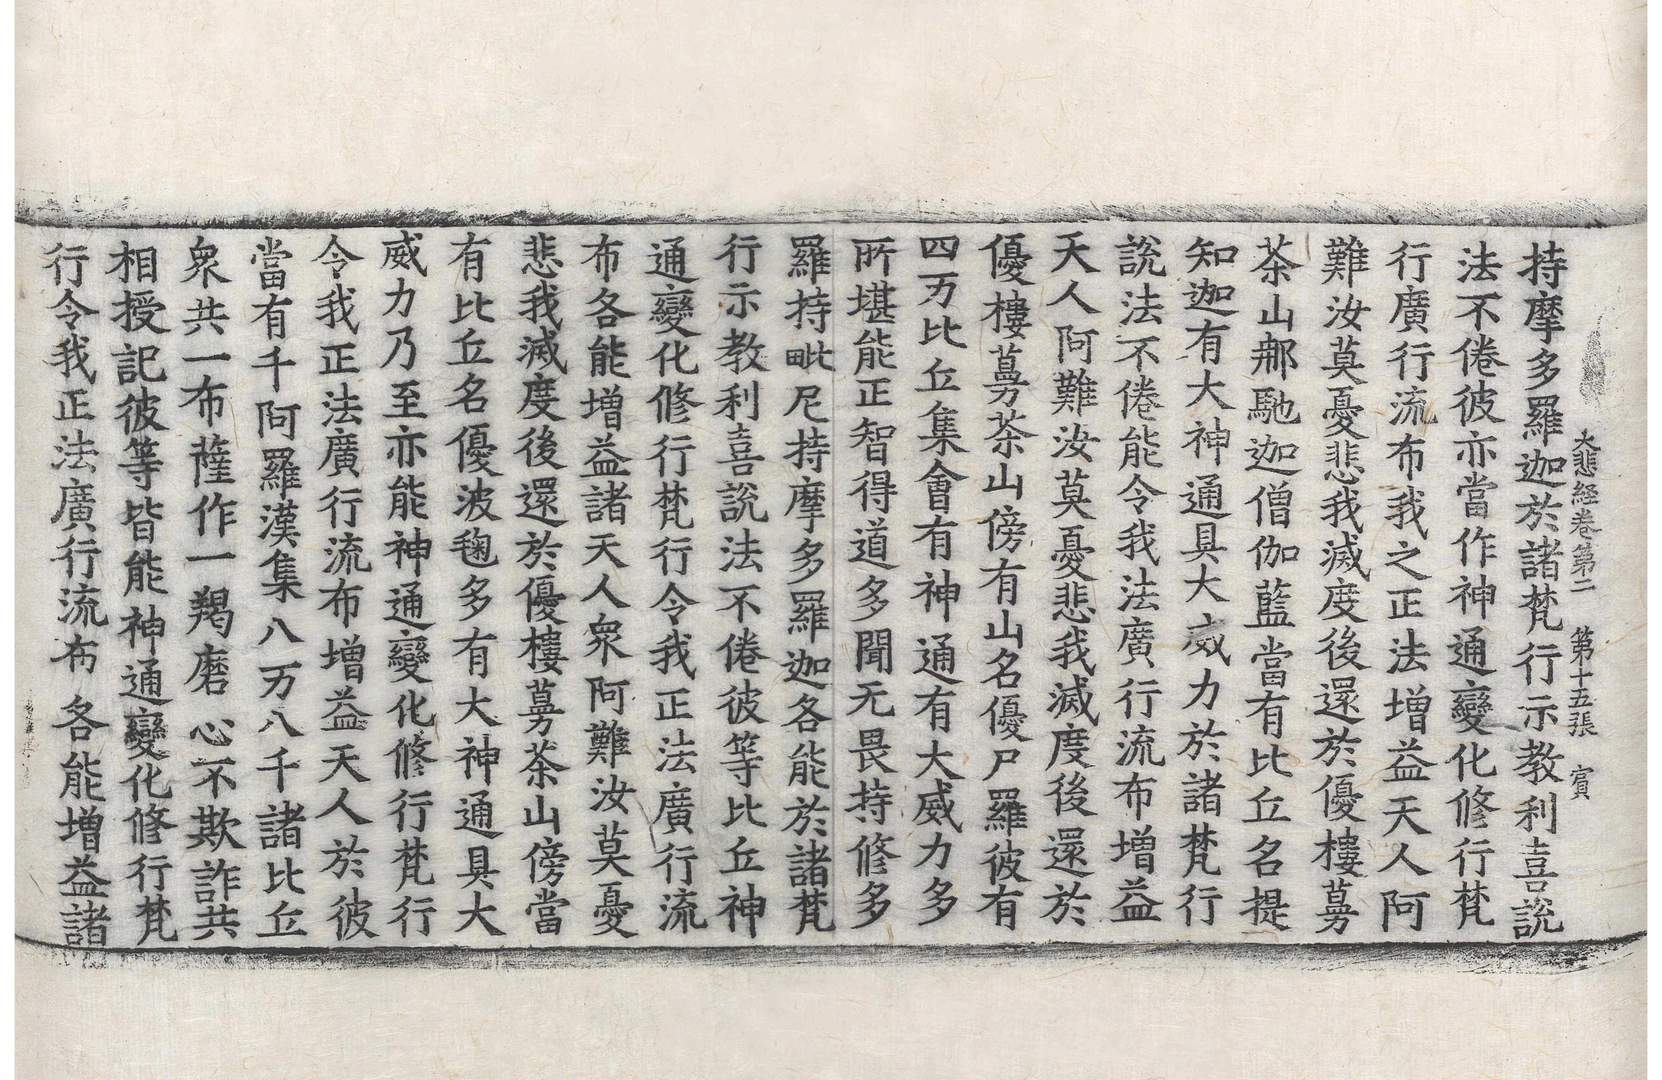 大悲経卷第二 第十五張 賓
持摩多羅迦於諸梵行示教利喜說
法不倦彼亦當作神通變化修行梵
行廣行流布我之正法增益天人阿
難汝莫憂悲我滅度後還於優樓蔓
茶山𨚗馳迦僧伽藍當有比丘名提
知迦有大神通具大威力於諸梵行
說法不倦能令我法廣行流布增益
天人阿難汝莫憂悲我滅度後還於
優樓蔓茶山傍有山名優尸羅彼有
四万比丘集會有神通有大威力多
所堪能正智得道多聞无畏持修多
羅持毗尼持摩多羅迦各能於諸梵
行示教利喜說法不倦彼等比丘神
通變化修行梵行令我正法廣行流
布各能增益諸天人衆阿難汝莫憂
悲我滅度後還於優樓蔓茶山傍當
有比丘名優波毱多有大神通具大
威力乃至亦能神通變化修行梵行
令我正法廣行流布增益天人於彼
當有千阿羅漢集八万八千諸比丘
衆共一布薩作一羯磨心不欺詐共
相授記彼等皆能神通變化修行梵
行令我正法廣行流布各能增益諸